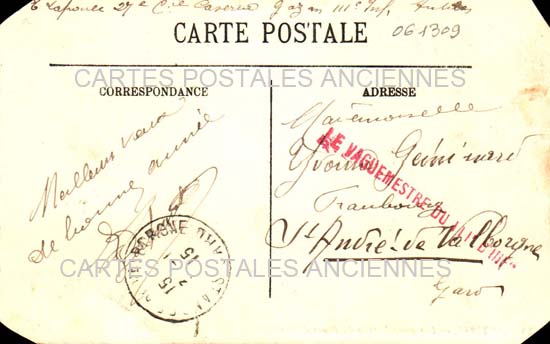 27e Cie Caserne Gazan 111e Inf, Antibes
061309
CARTE POSTALE
CARTES POSTALES ANCIENNES
CORRESPONDANCE
ADRESSE
Meilleurs vœux
de bonne année
Mademoiselle
Yvonne
Faubourg
St André-de-Valborgne
Gard
LE VAGUEMESTRE DU 111E INF
15
CARTES POSTALES ANCIENNES